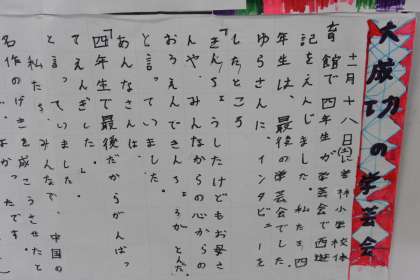 大成功の学芸会
十一月十八日(土)に若林小学校体
育館で四年生が学芸会で西遊
記をえんじました。私たち四
年生は、最後の学芸会でした。
ゆらさんにインタビューを
したところ
「きんちょうしたけどもお母さ
んや、みんなからの心からの
おうえんできんちょうがとんだ。」
と言っていました。
あんなさんは、
「四年生で最後だからがんばっ
てえんぎした。」
と言っていました。
私たち、みんなで、中国の
名作のげきを成こうさせたと